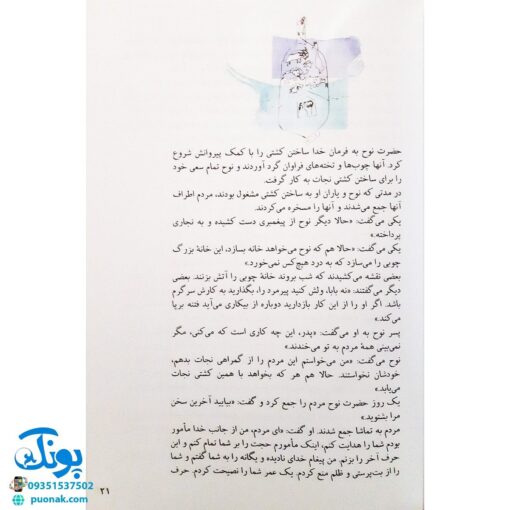 حضرت نوح به فرمان خدا ساختن کشتی را با کمک پیروانش شروع
کرد. آنها چوب‌ها و تخته‌های فراوان گرد آوردند و نوح تمام سعی خود
را برای ساختن کشتی نجات به کار گرفت.
در مدتی که نوح و یاران او به ساختن کشتی مشغول بودند، مردم اطراف
آنها جمع می‌شدند و آنها را مسخره می‌کردند.
یکی می‌گفت: «حالا دیگر نوح از پیغمبری دست کشیده و به نجاری
پرداخته.»
یکی می‌گفت: «حالا هم که نوح می‌خواهد خانه بسازد، این خانهٔ بزرگ
چوبی را می‌سازد که به درد هیچ‌کس نمی‌خورد.»
بعضی نقشه می‌کشیدند که شب بروند خانهٔ چوبی را آتش بزنند. بعضی
دیگر می‌گفتند: «نه بابا، ولش کنید پیرمرد را، بگذارید به کارش سرگرم
باشد. اگر او را از این کار بازدارید دوباره از بیکاری می‌آید فتنه برپا
می‌کند.»
پسر نوح به او می‌گفت: «پدر، این چه کاری است که می‌کنی، مگر
نمی‌بینی همهٔ مردم به تو می‌خندند.»
نوح می‌گفت: «من می‌خواستم این مردم را از گمراهی نجات بدهم،
خودشان نخواستند. حالا هم هر که بخواهد با همین کشتی نجات
می‌یابد.»
یک روز حضرت نوح مردم را جمع کرد و گفت: «بیایید آخرین سخن
مرا بشنوید.»
مردم به تماشا جمع شدند. او گفت: «ای مردم، من از جانب خدا مأمور
بودم شما را هدایت کنم، اینک مأمورم حجت را بر شما تمام کنم و این
حرف آخر را بزنم. من پیغام خدای نادیده و یگانه را به شما گفتم و شما
را از بت‌پرستی و ظلم منع کردم. یک عمر شما را نصیحت کردم. حرف
۲۱
پونک
09351537502
puonak.com